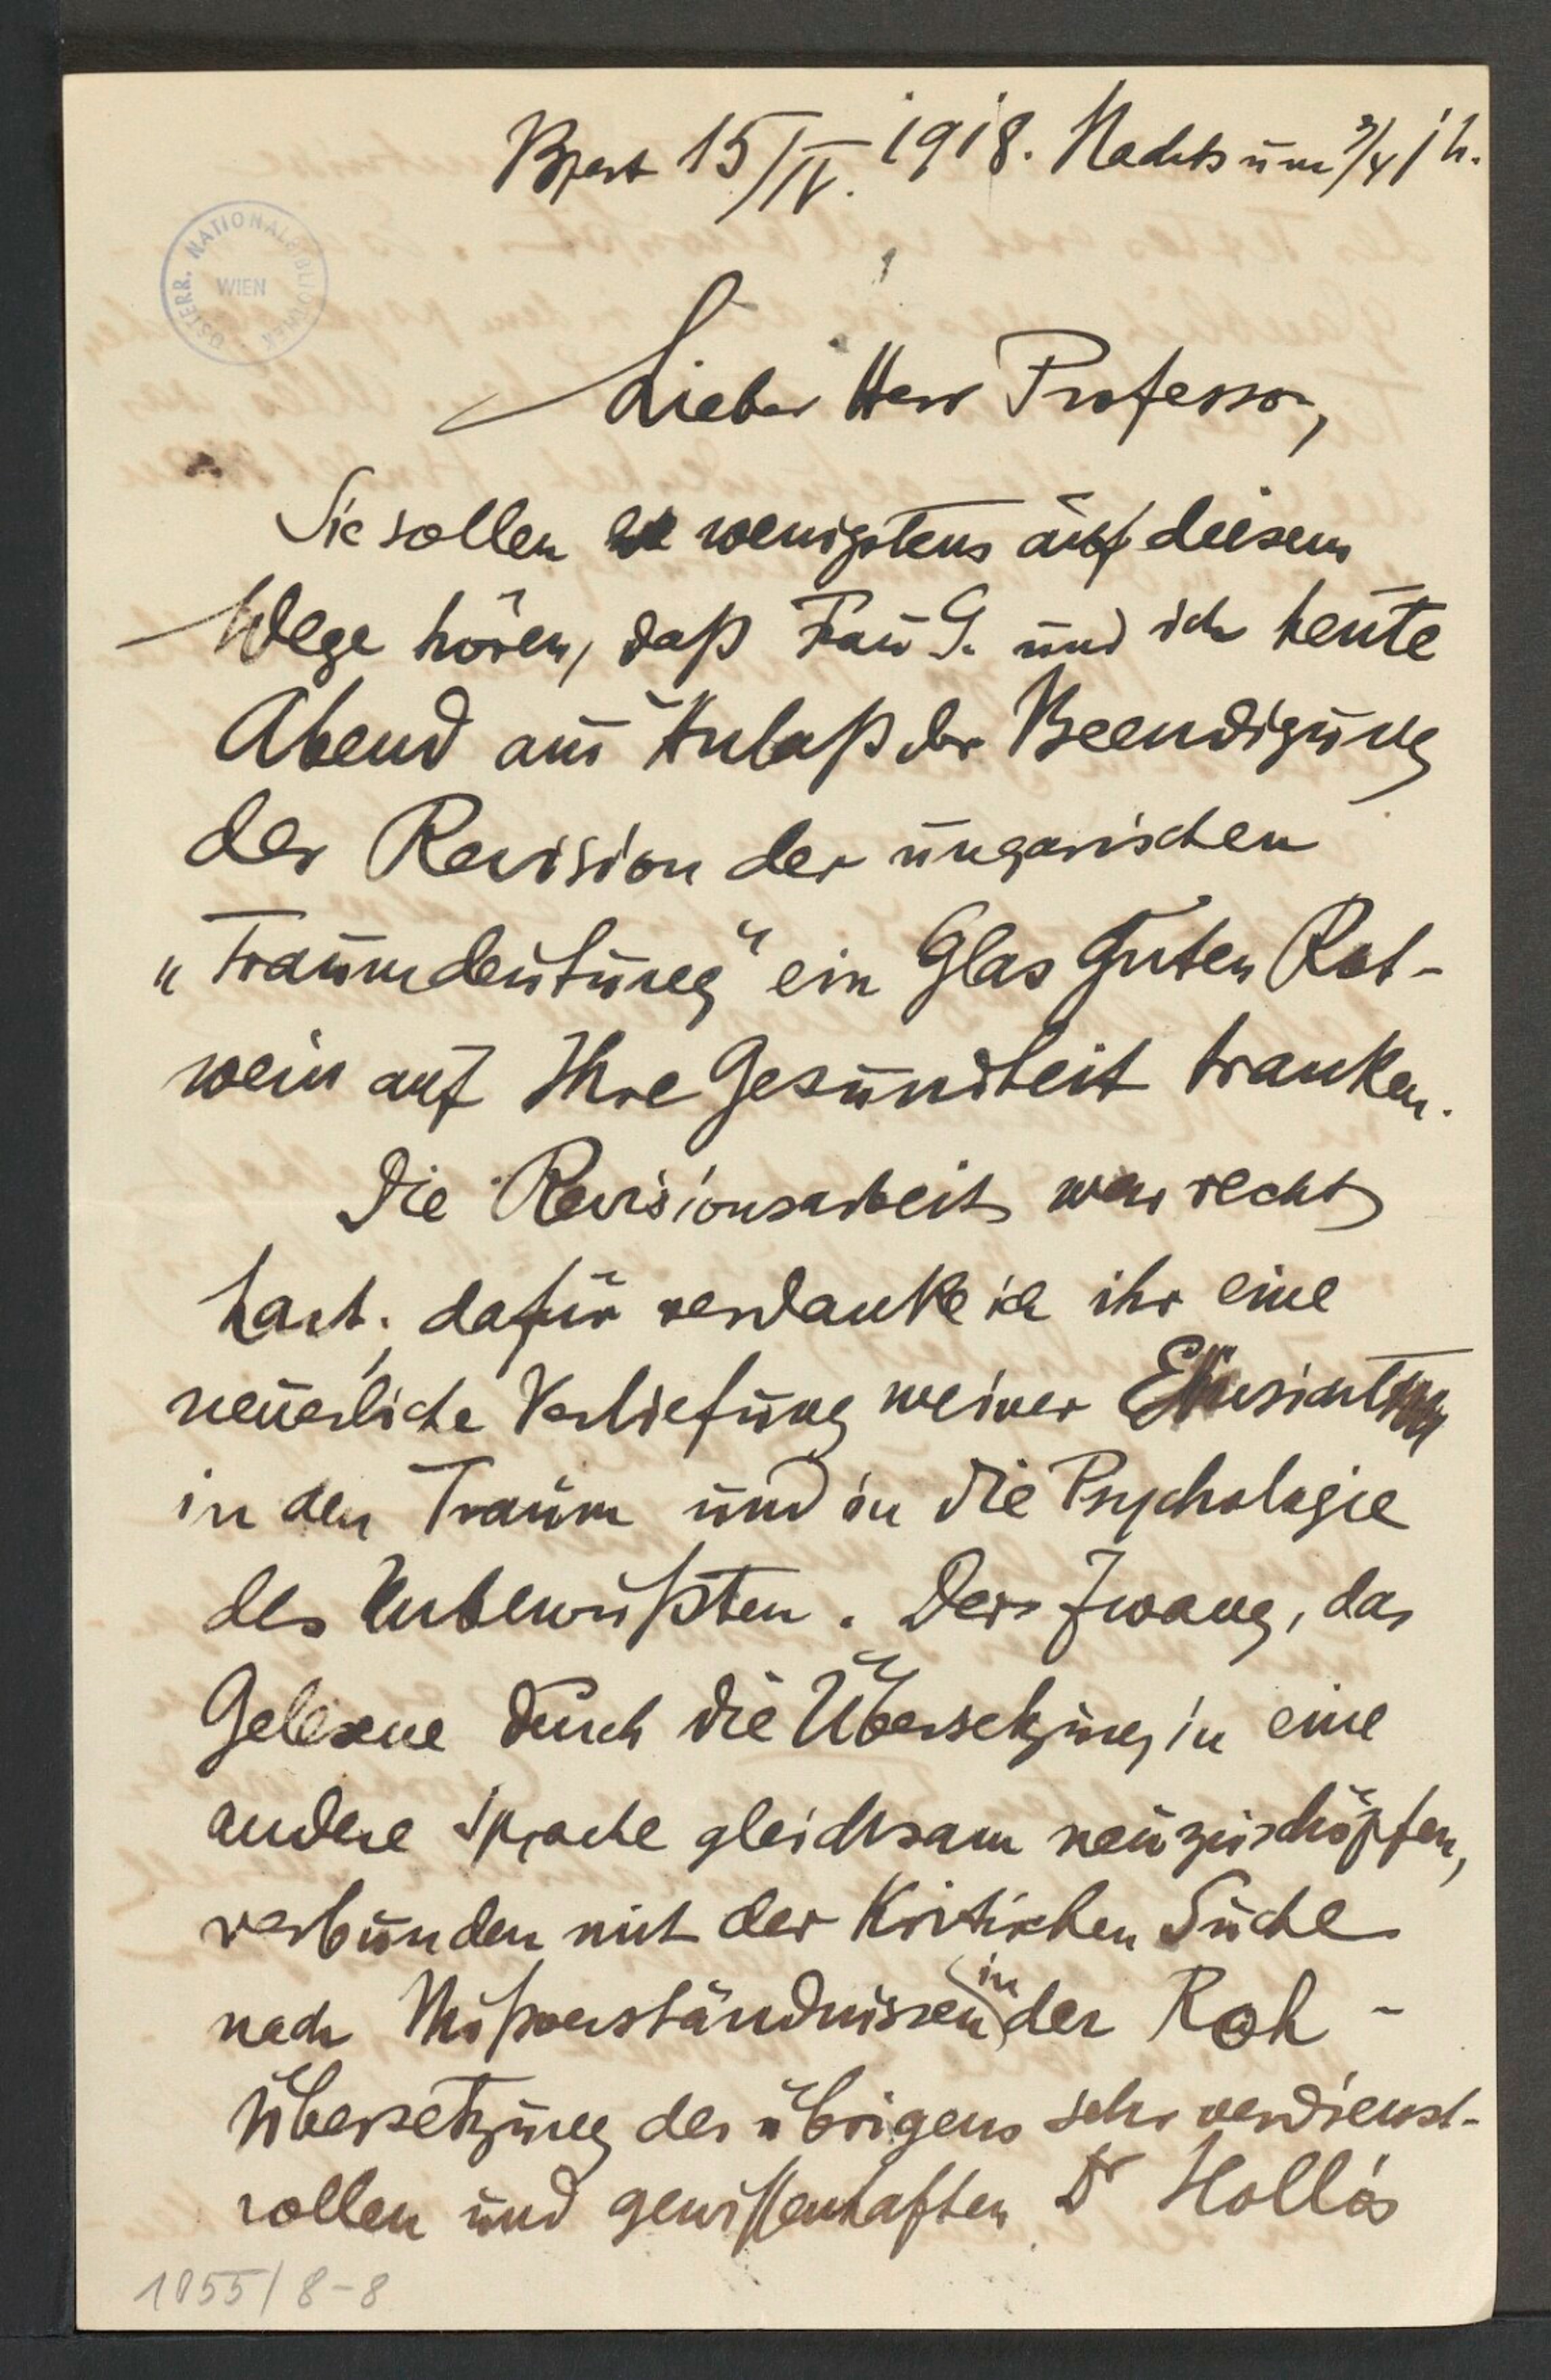 Bpest 15/IV. 1918. Nachts um 3/4 1 h.
ÖSTERR. NATIONALBIBLIOTHEK
WIEN
Lieber Herr Professor,
Sie sollen wenigstens auf diesem
Wege hören, daß Frau G. und ich heute
Abend aus Anlaß der Beendigung
der Revision der ungarischen
„Traumdeutung“ ein Glas guten Rot-
wein auf Ihre Gesundheit tranken.
Die Revisionsarbeit war recht
hart; dafür verdanke ich ihr eine
neuerliche Vertiefung meiner Einsicht
in den Traum und in die Psychologie
des Unbewußten. Der Zwang, das
Gelesene durch die Übersetzung in eine
andere Sprache gleichsam neuzuschöpfen,
verbunden mit der kritischen Suche
nach Mißverständnissen in der Roh-
übersetzung des übrigens sehr verdienst-
vollen und gewissenhaften Dr Hollós
1055/8-8